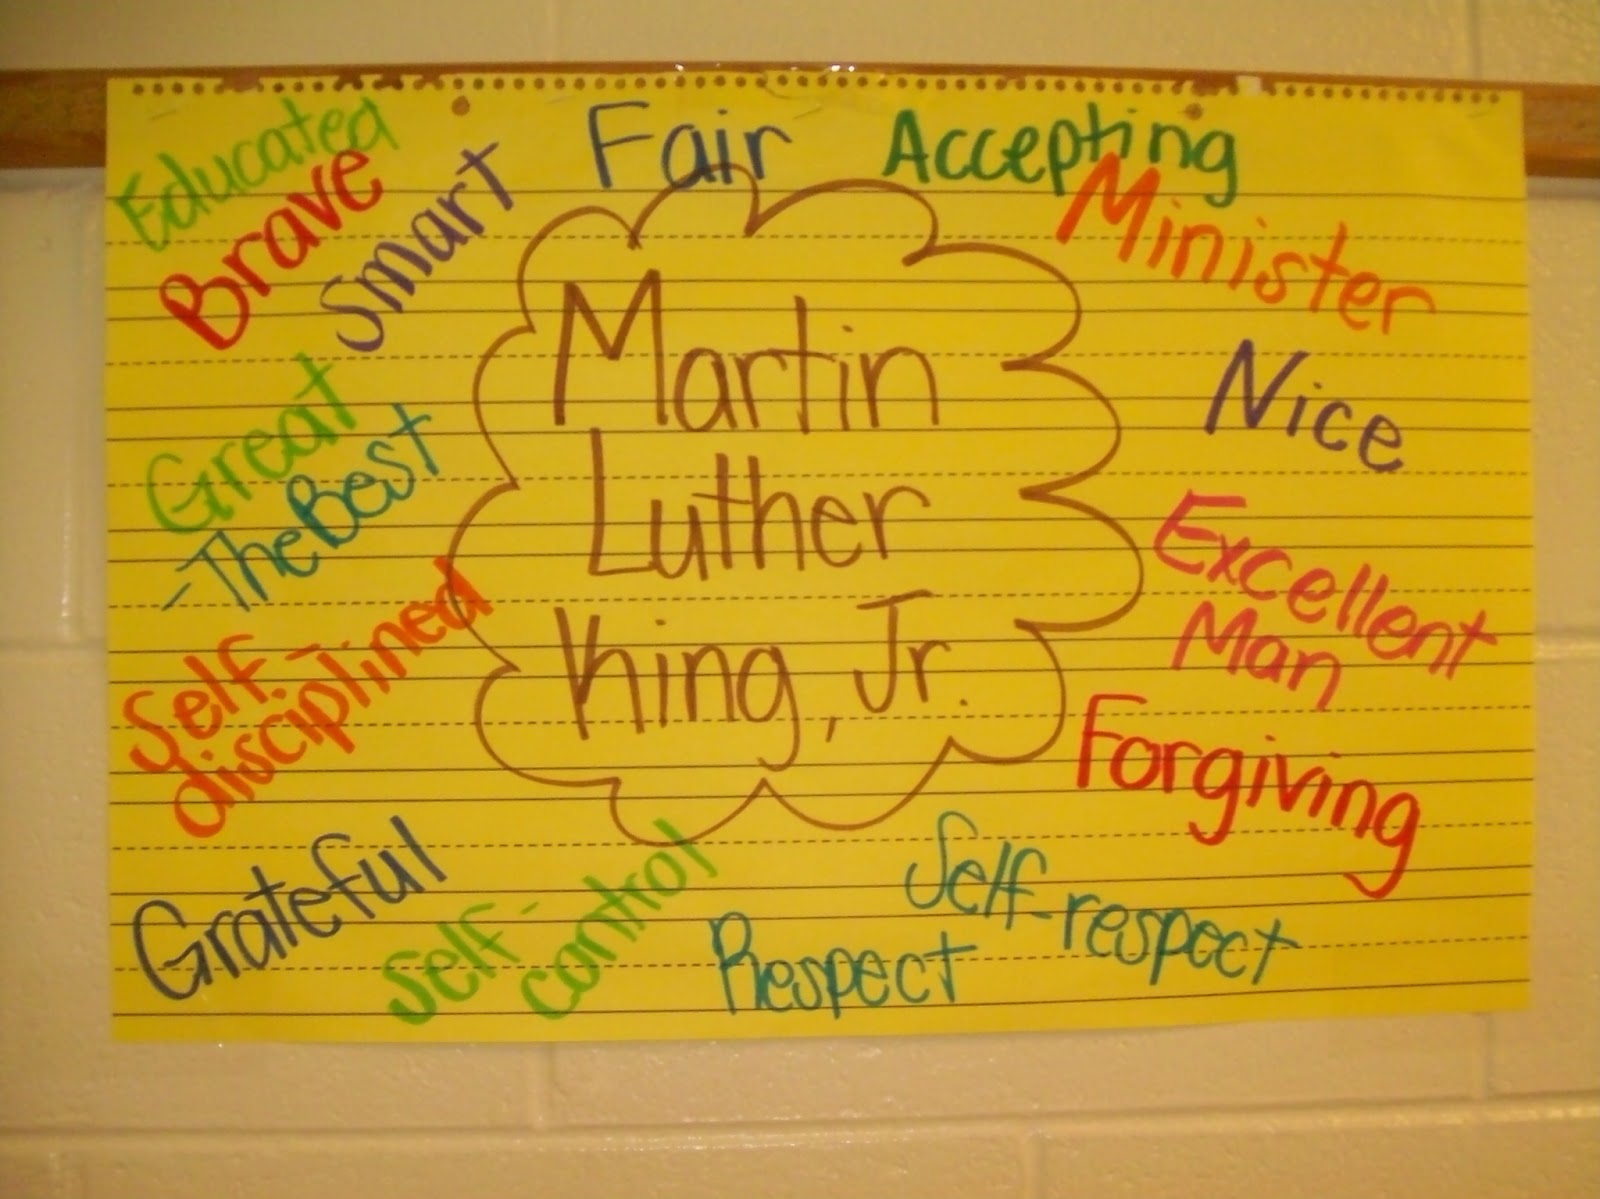 Educated
Brave
Smart
Fair
Accepting
Minister
Nice
Excellent
Man
Forgiving
Self-respect
Respect
Self-
control
Grateful
Self-
disciplined
-The Best
Great
Martin
Luther
King, Jr.